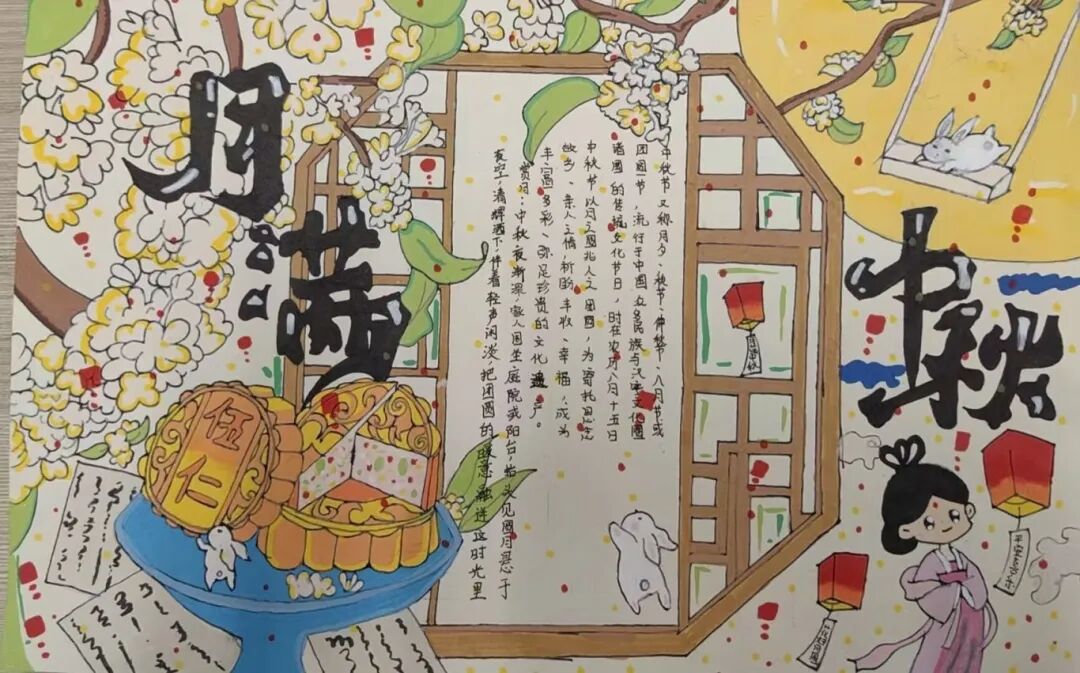 月满
中秋
中秋节又称月夕、秋节、仲秋节、八月节、或
团圆节,流行于中国众多民族与汉字文化圈
诸国的传统文化节日,时在农历八月十五日
中秋节以月之圆兆人之团圆,为寄托思念
故乡、亲人之情,祈盼丰收、幸福,成为
丰富多彩、弥足珍贵的文化遗产。
赏月:中秋夜渐深,家人围坐庭院或阳台,抬头见圆月悬于
夜空,清辉洒下,伴着轻声闲谈,把团圆的暖意融进这时光里
伍仁
平安喜乐